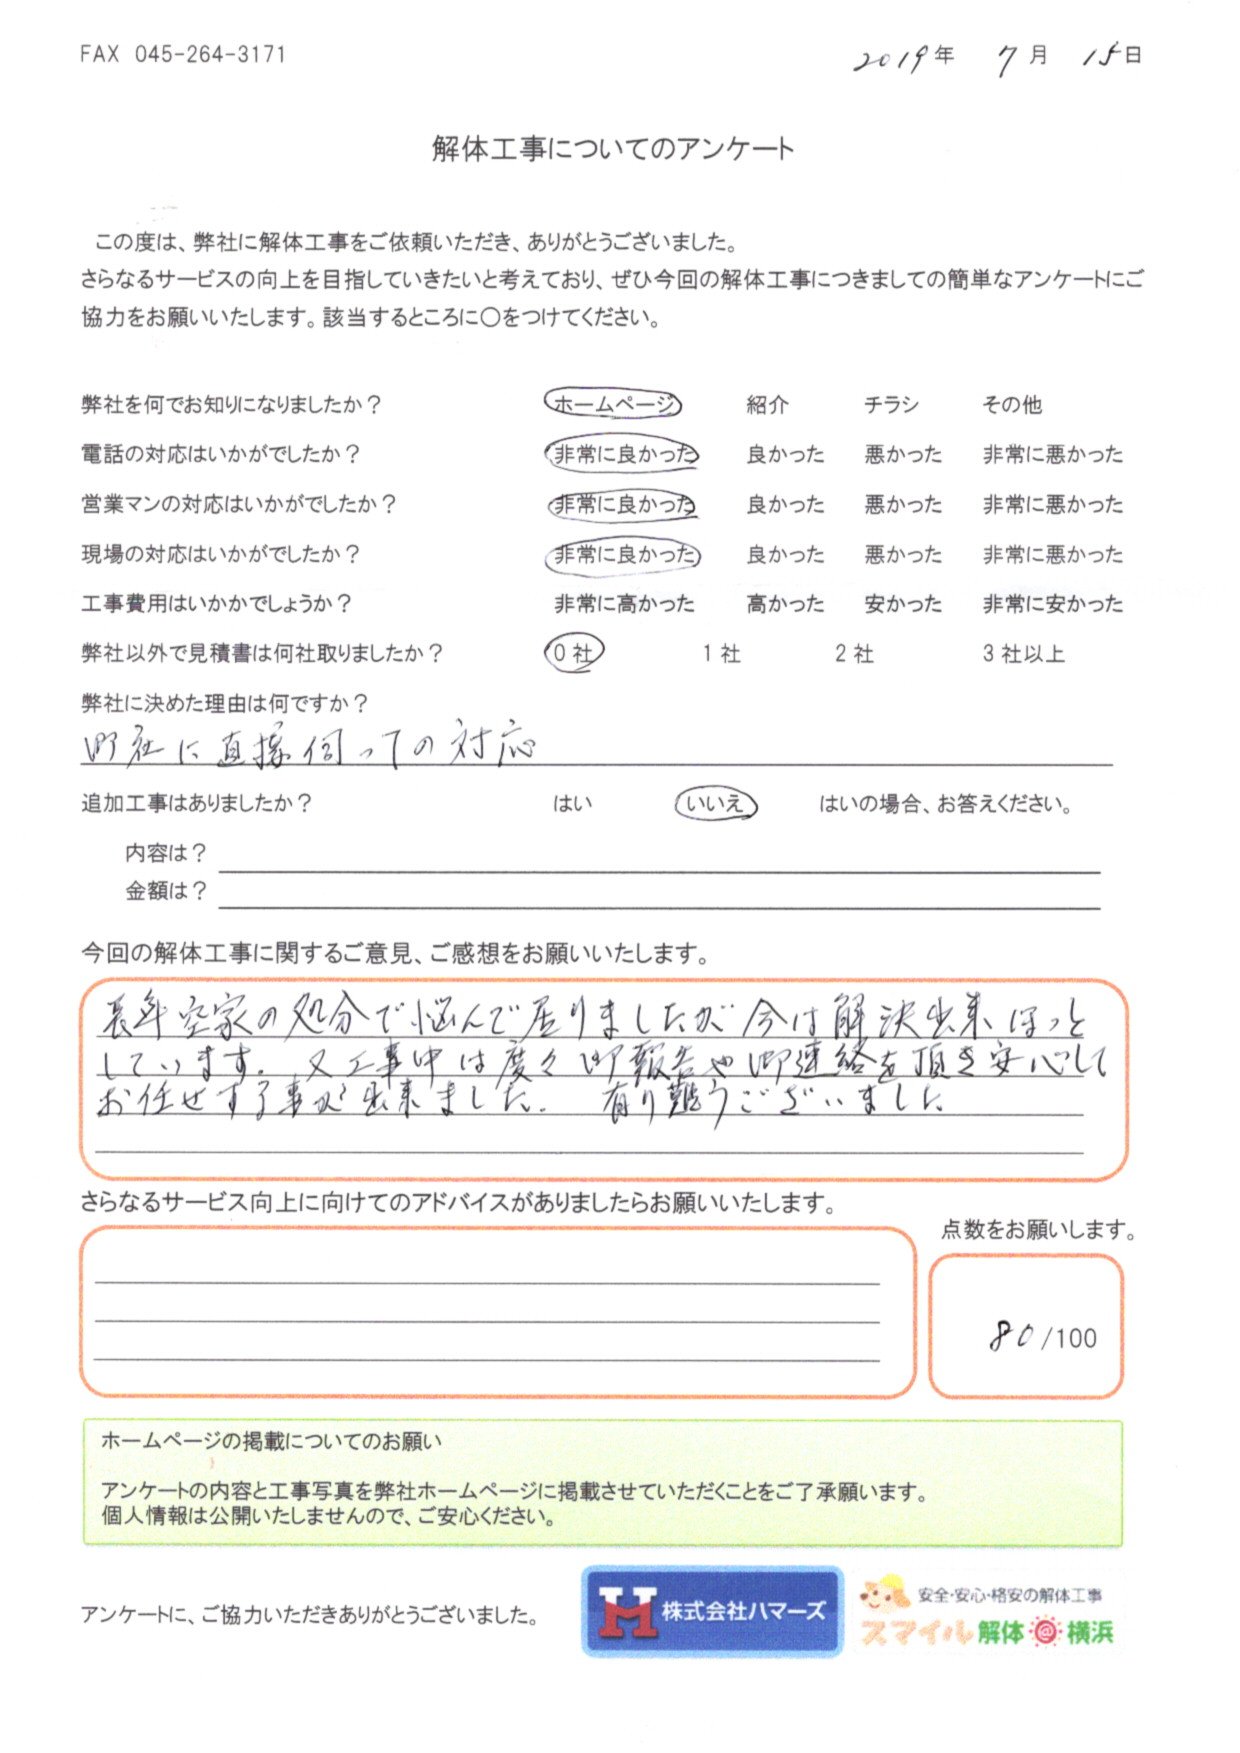 FAX 045-264-3171
2019年 7月 15日
解体工事についてのアンケート
この度は、弊社に解体工事をご依頼いただき、ありがとうございました。
さらなるサービスの向上を目指していきたいと考えており、ぜひ今回の解体工事につきましての簡単なアンケートにご
協力をお願いいたします。該当するところに〇をつけてください。
弊社を何でお知りになりましたか？ ホームページ 紹介 チラシ その他
電話の対応はいかがでしたか？ 非常に良かった 良かった 悪かった 非常に悪かった
営業マンの対応はいかがでしたか？ 非常に良かった 良かった 悪かった 非常に悪かった
現場の対応はいかがでしたか？ 非常に良かった 良かった 悪かった 非常に悪かった
工事費用はいかかでしょうか？ 非常に高かった 高かった 安かった 非常に安かった
弊社以外で見積書は何社取りましたか？ 0社 1社 2社 3社以上
弊社に決めた理由は何ですか？
御社に直接伺っての対応
追加工事はありましたか？ はい いいえ はいの場合、お答えください。
内容は？
金額は？
今回の解体工事に関するご意見、ご感想をお願いいたします。
長年空家の処分で悩んで居りましたが今は解決出来ほっと
しています。又工事中は度々御報告や御連絡を頂き安心して
お任せする事が出来ました。有り難うございました
さらなるサービス向上に向けてのアドバイスがありましたらお願いいたします。
点数をお願いします。
80/100
ホームページの掲載についてのお願い
アンケートの内容と工事写真を弊社ホームページに掲載させていただくことをご了承願います。
個人情報は公開いたしませんので、ご安心ください。
アンケートに、ご協力いただきありがとうございました。
H 株式会社ハマーズ
安全・安心・格安の解体工事
スマイル解体@横浜